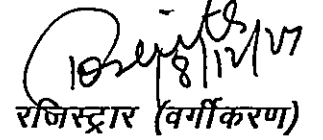 8/12/27
रजिस्ट्रार (वर्गीकरण)